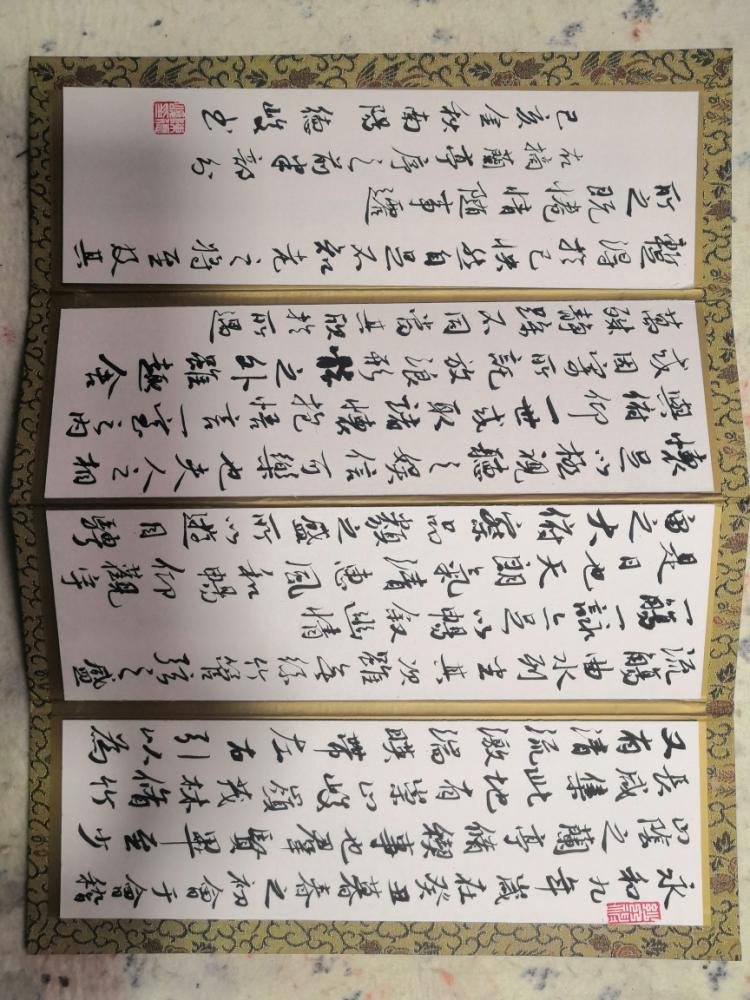 永和九年歲在癸丑暮春之初會于會稽
山陰之蘭亭脩禊事也羣賢畢至少
長咸集此地有崇山峻嶺茂林脩竹
又有清流激湍暎帶左右引以為
流觴曲水列坐其次雖無絲竹管弦之盛
一觴一詠亦足以暢叙幽情
是日也天朗氣清惠風和暢仰觀宇
宙之大俯察品類之盛所以遊目騁
懷足以極視聽之娛信可樂也夫人之相
與俯仰一世或取諸懷抱悟言一室之內
或因寄所託放浪形骸之外雖趣舍
萬殊靜躁不同當其欣於所遇
暫得於己快然自足不知老之將至及其
所之既惓情隨事遷
右摘蘭亭序之前半部分
己亥金秋南陽德峻书